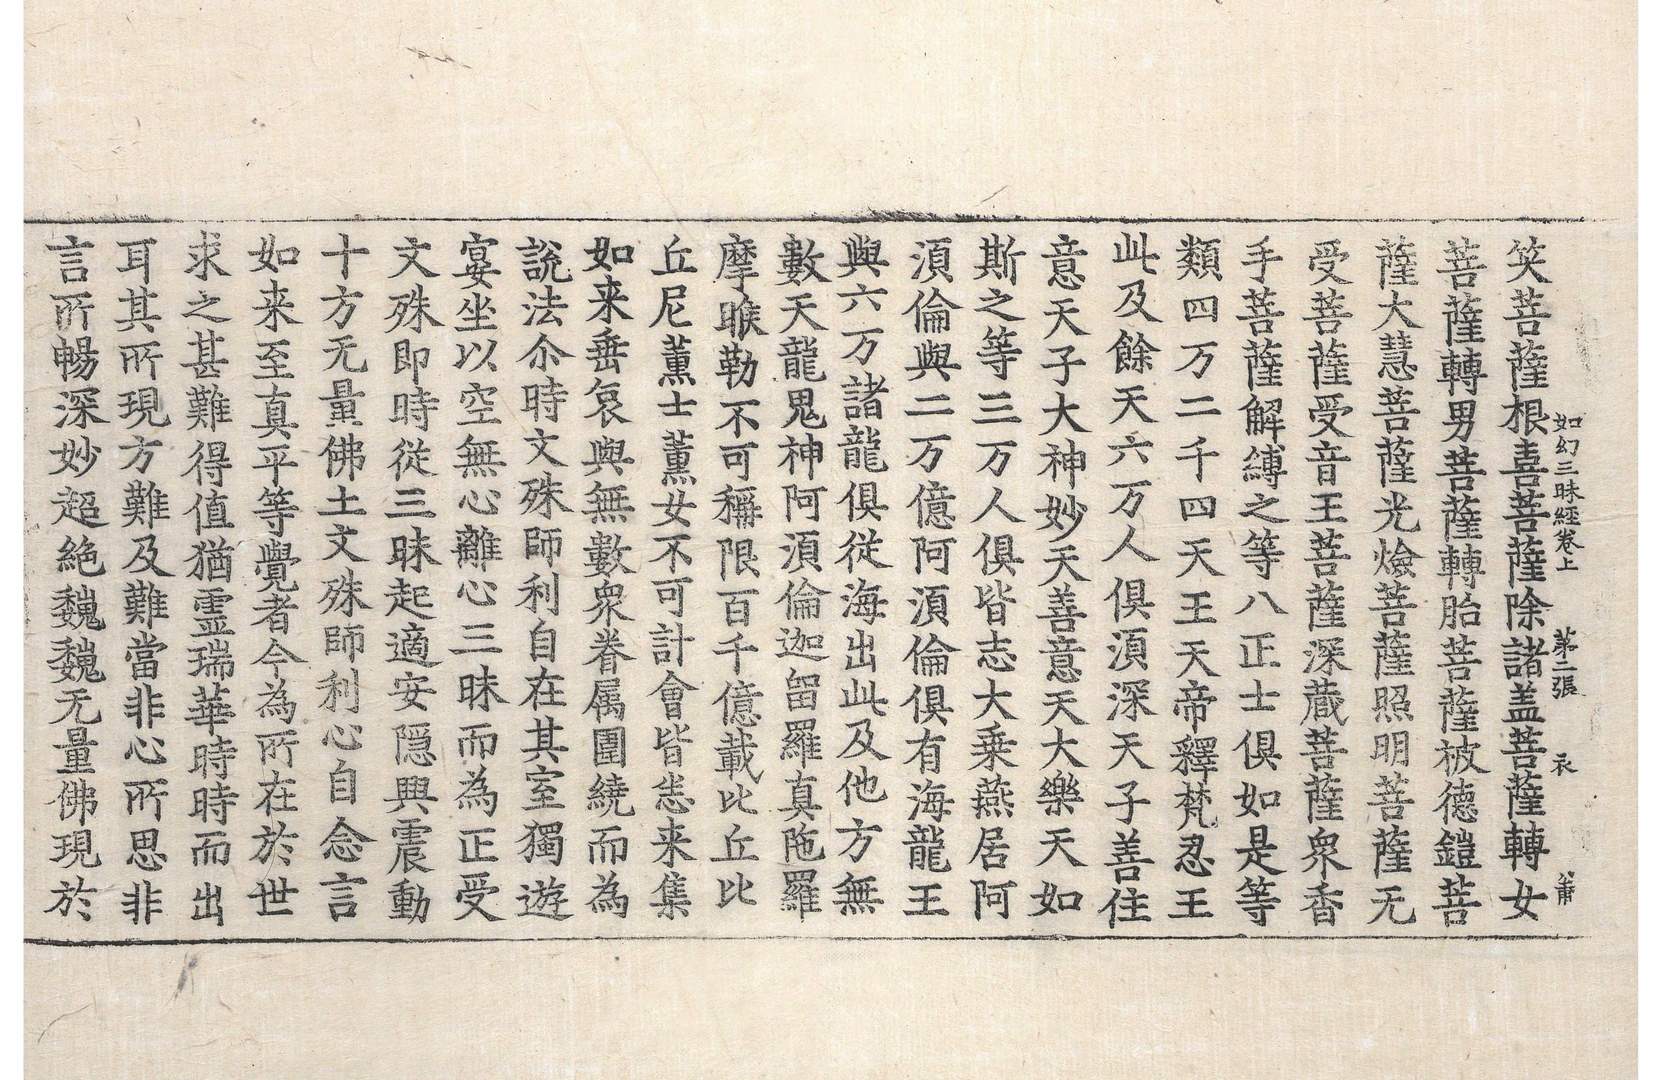 如幻三昧經卷上 苐二張 衣 莆
笑菩薩根喜菩薩除諸盖菩薩轉女
菩薩轉男菩薩轉胎菩薩被德鎧菩
薩大慧菩薩光燄菩薩照明菩薩无
受菩薩受音王菩薩深蔵菩薩衆香
手菩薩解縛之等八正士俱如是等
類四万二千四天王天帝釋梵忍王
此及餘天六万人俱湏深天子善住
意天子大神妙天善意天大樂天如
斯之等三万人俱皆志大乗燕居阿
湏倫與二万億阿湏倫俱有海龍王
與六万諸龍俱従海出此及他方無
數天龍鬼神阿湏倫迦留羅真陁羅
摩睺勒不可稱限百千億載比丘比
丘尼薰士薰女不可計會皆悉来集
如来垂哀與無數衆眷属圍繞而為
說法尒時文殊師利自在其室獨遊
宴坐以空無心離心三昧而為正受
文殊即時従三昧起適安隠興震動
十方无量佛土文殊師利心自念言
如来至真平等覺者今為所在於世
求之甚難得值猶霊瑞華時時而出
耳其所現方難及難當非心所思非
言所暢深妙超絶巍巍无量佛現於